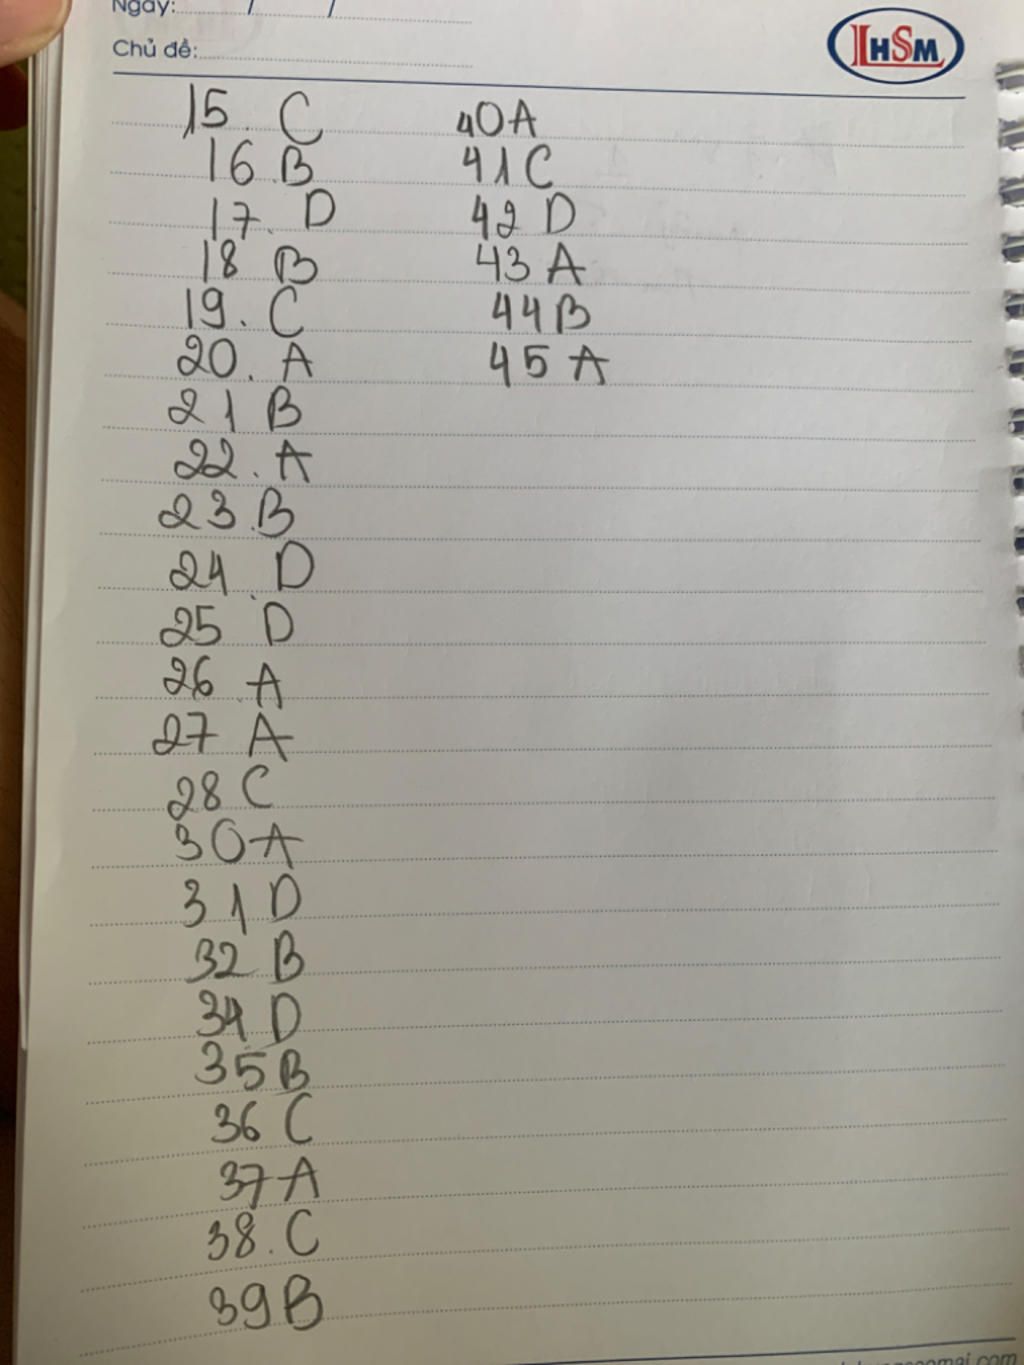 Ngày: / /
Chủ đề:
LHSM
15. C
16 B
17. D
18 B
19. C
20. A
21 B
22. A
23.B
24 D
25 D
26 A
27 A
28 C
30 A
31 D
32 B
34 D
35 B
36 C
37 A
38. C
39 B
40 A
41 C
42 D
43 A
44 B
45 A